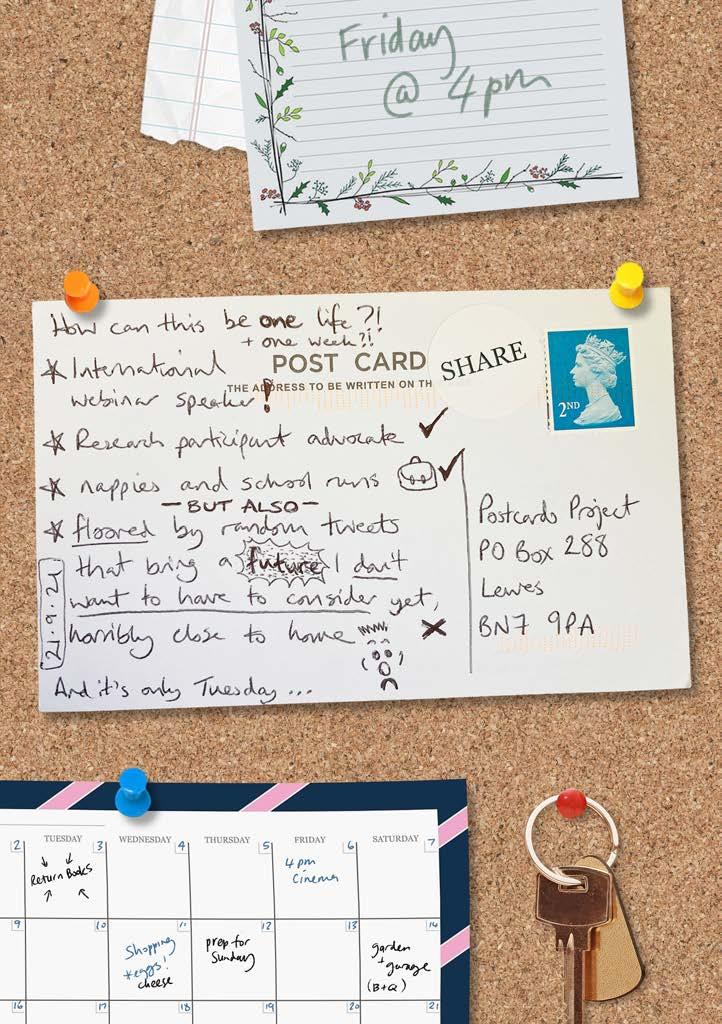 Friday
@ 4pm
How can this be one life?!
+ one week?!
* International
webinar speaker!
POST CARD
THE ADDRESS TO BE WRITTEN ON TH
SHARE
2ND
* Research participant advocate ✓
* nappies and school runs ✓
- BUT ALSO -
* floored by random tweets
that bring a future I don't
want to have to consider yet,
horribly close to home x
21.9.21
And it's only Tuesday...
Postcards Project
PO Box 288
Lewes
BN7 9PA
TUESDAY WEDNESDAY THURSDAY FRIDAY SATURDAY
2 3 4 5 6 7
Return Books
4pm
Cinema
9 10 11 12 13 14
Shopping
*eggs!
cheese
prep for
Sunday
garden
+ garage
(B+Q)
16 17 18 19 20 21